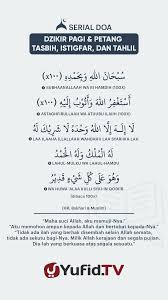 SERIAL DOA
DZIKIR PAGI & PETANG
TASBIH, ISTIGFAR, DAN TAHLIL
سُبْحَانَ اللَّهِ وَبِحَمْدِهِ (١٠٠x)
SUBHAANALLAH WA BI HAMDIH (100X)
أَسْتَغْفِرُ اللَّهَ وَأَتُوبُ إِلَيْهِ (١٠٠x)
ASTAGHFIRULLAH WA ATUUBU ILAIH (100X)
لَا إِلَهَ إِلَّا اللَّهُ وَحْدَهُ لَا شَرِيكَ لَهُ
LAA ILAHA ILLALLAH WAHDAHU LAA SYARIKA LAH
لَهُ الْمُلْكُ وَلَهُ الْحَمْدُ
LAHUL-MULKU WA LAHUL-HAMDU
وَهُوَ عَلَى كُلِّ شَيْءٍ قَدِيرٌ
WA HUWA 'ALAA KULLI SYAI-IN QODIIR
(dibaca 100x)
(HR. Bukhari & Muslim)
"Maha suci Allah, aku memuji-Nya."
"Aku memohon ampun kepada Allah dan bertobat kepada-Nya."
"Tidak ada ilah yang berhak disembah selain Allah semata,
tidak ada sekutu bagi-Nya. Milik Allah kerajaan dan segala pujian.
Dia-lah yang berkuasa atas segala sesuatu."
YUFID.TV